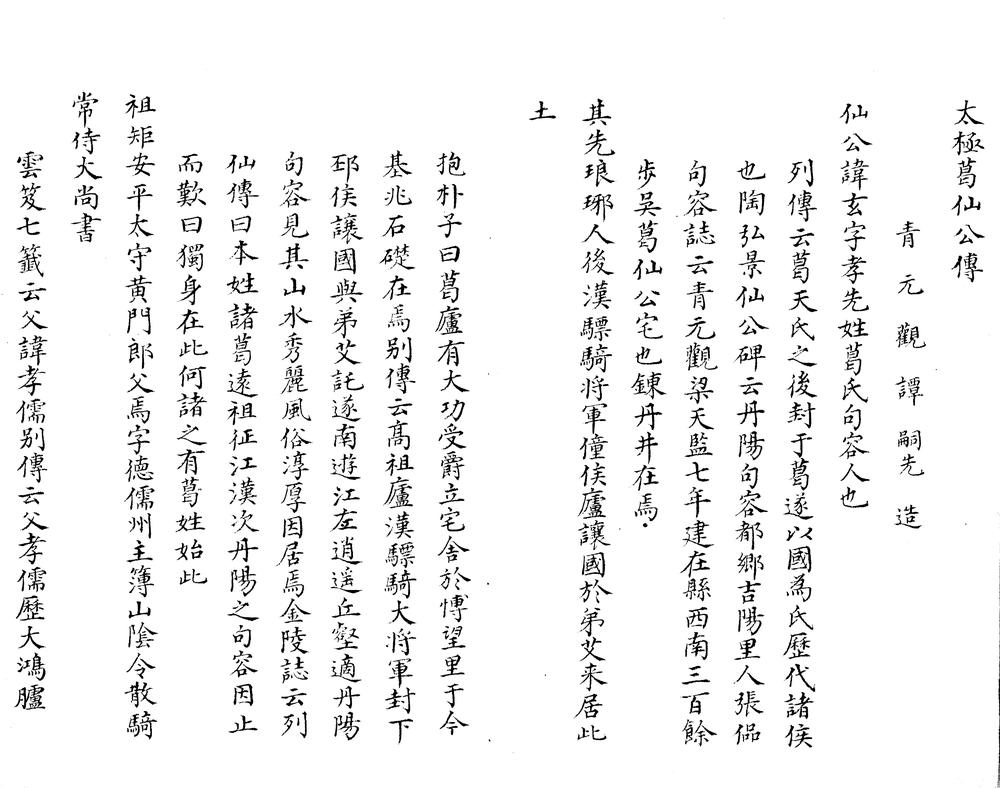 太極葛仙公傳
青元觀譚嗣先造
仙公諱玄字孝先姓葛氏句容人也
列傳云葛天氏之後封于葛遂以國為氏歷代諸侯
也陶弘景仙公碑云丹陽句容都鄉吉陽里人張侣
句容誌云青元觀梁天監七年建在縣西南三百餘
步吳葛仙公宅也鍊丹井在焉
其先琅琊人後漢驃騎將軍僮侯廬讓國於弟艾来居此
土
抱朴子曰葛廬有大功受爵立宅舍於愽望里于今
基兆石礎在焉别傳云髙祖廬漢驃騎大將軍封下
邳侯讓國與弟艾託遂南遊江左逍遥丘壑適丹陽
句容見其山水秀麗風俗淳厚因居焉金陵誌云列
仙傳曰本姓諸葛遠祖征江漢次丹陽之句容因止
而歎曰獨身在此何諸之有葛姓始此
祖矩安平太守黄門郎父焉字德儒州主簿山陰令散騎
常侍大尚書
雲笈七籤云父諱孝儒别傳云父孝儒歷大鴻臚